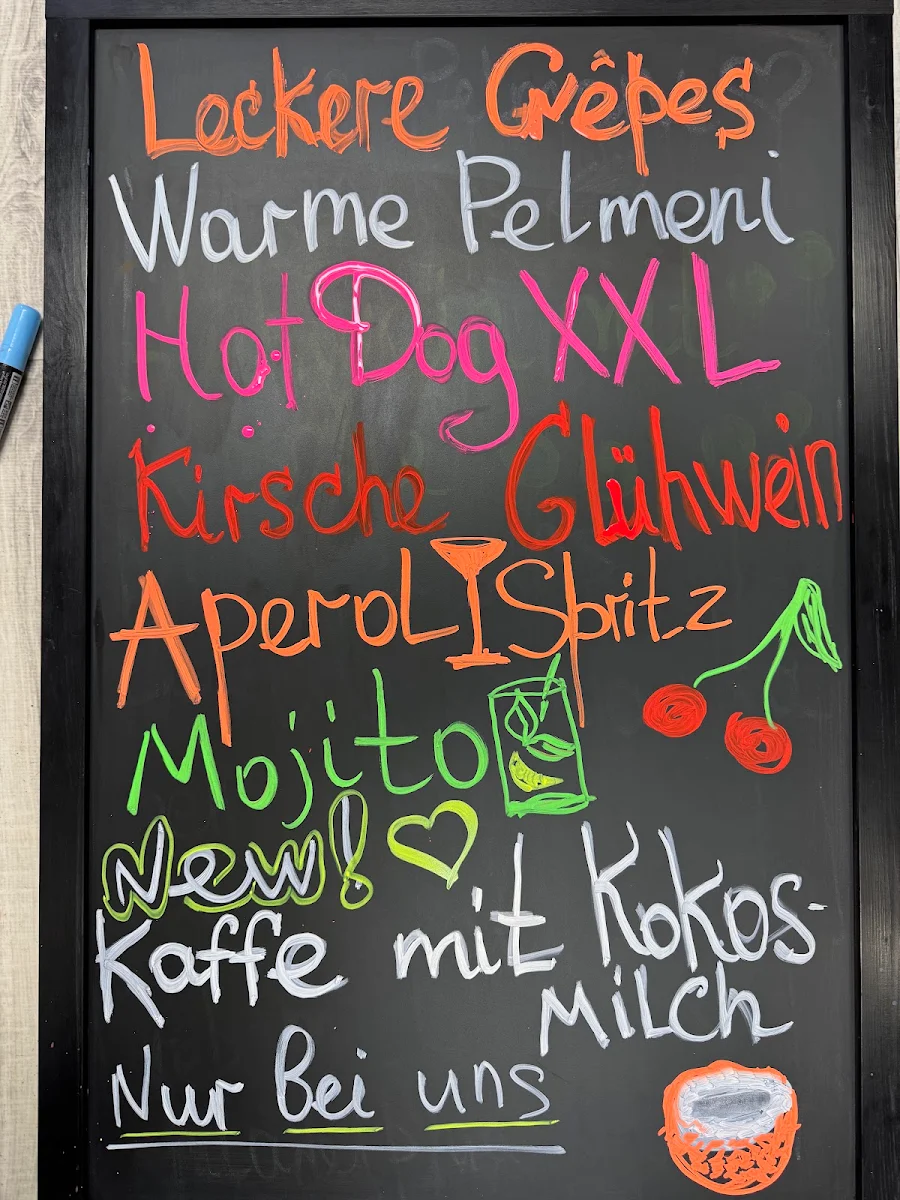 Leckere Crêpes
Warme Pelmeni
Hot Dog XXL
Kirsche Glühwein
Aperol Spritz
Mojito
New!
Kaffe mit Kokos-
Milch
Nur Bei uns